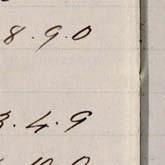 8.9.0
3.4.9